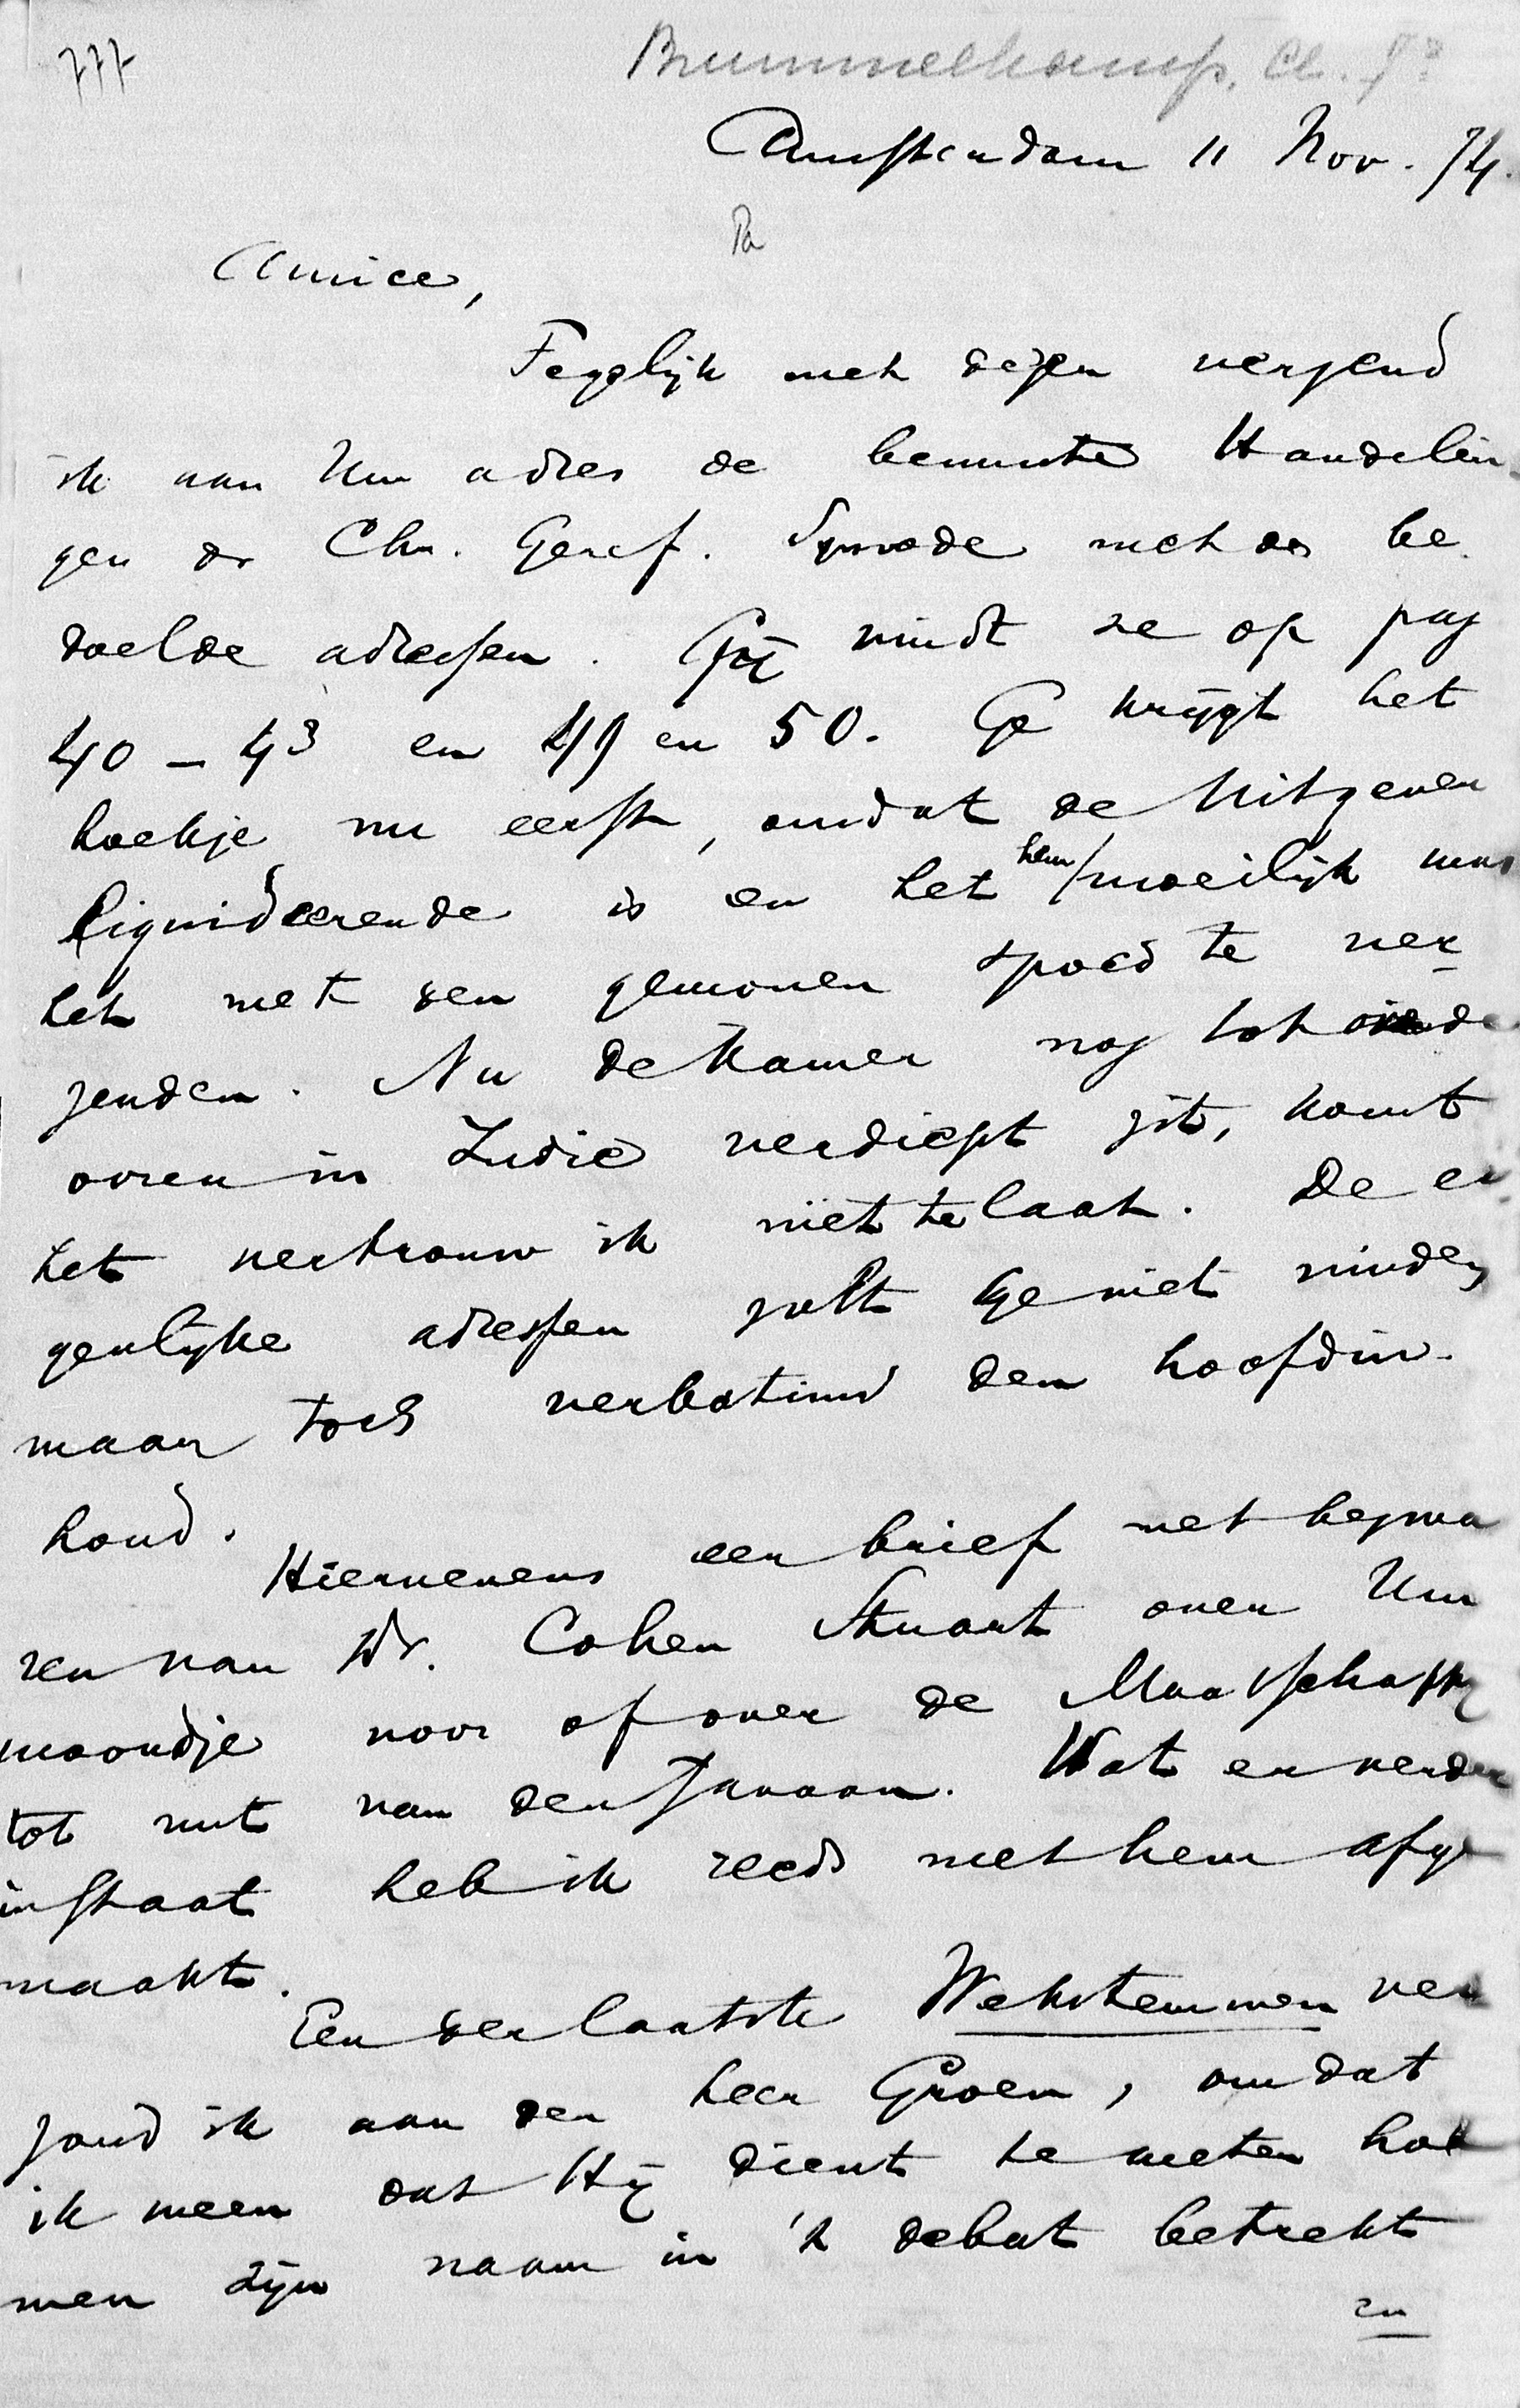 777
Brummelkamp, A. Jr
Amsterdam 11 Nov. 74.
Pa
Amice,
Tegelijk met dezen verzend
ik aan Uw adres de bewuste Handelin-
gen der Chr. Geref. Synode met de be-
doelde adressen. Gij vindt ze op pag
40 – 43 en 49 en 50. Ge krijgt het
boekje nu eerst, omdat de Uitgever
liquideerende is en het hem moeilijk was
het met den gewonen spoed te ver-
zenden. Nu de Kamer nog tot over de
ooren in Indie verdiept zit, komt
het vertrouw ik niet te laat. De ei-
genlijke adressen zult ge niet vinden
maar toch verbatimd den hoofdin-
houd.
Hiernevens een brief met bezwa
ren van Dr. Cohen Stuart over Uw
woordje voor of over de Maatschappij
tot nut van den Javaan. Wat er verder
in staat heb ik reeds met hem afge
maakt.
Een der laatste Wekstemmen ver
zond ik aan den heer Groen, omdat
ik meen dat Hij dient te weten hoe
men zijn naam in 't debat betrekt
en